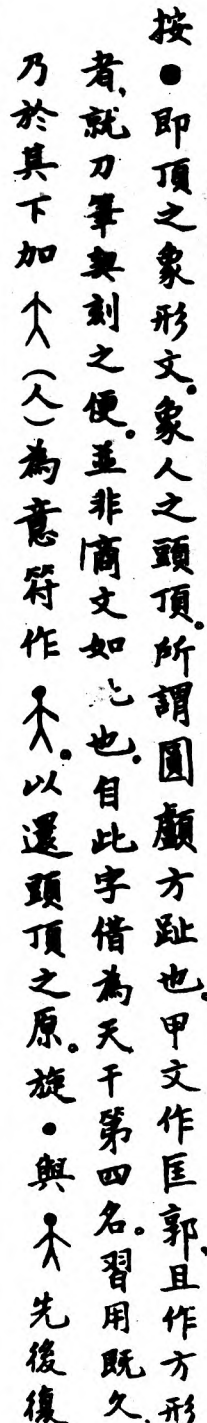 按●即頂之象形文。象人之頭頂。所謂圓顱方趾也。甲文作匡郭。且作方形
者，就刀筆契刻之便。並非商文如此也。自此字借為天干第四名。習用既久。
乃於其下加（人）為意符作。以還頭頂之原。旋●與先後復